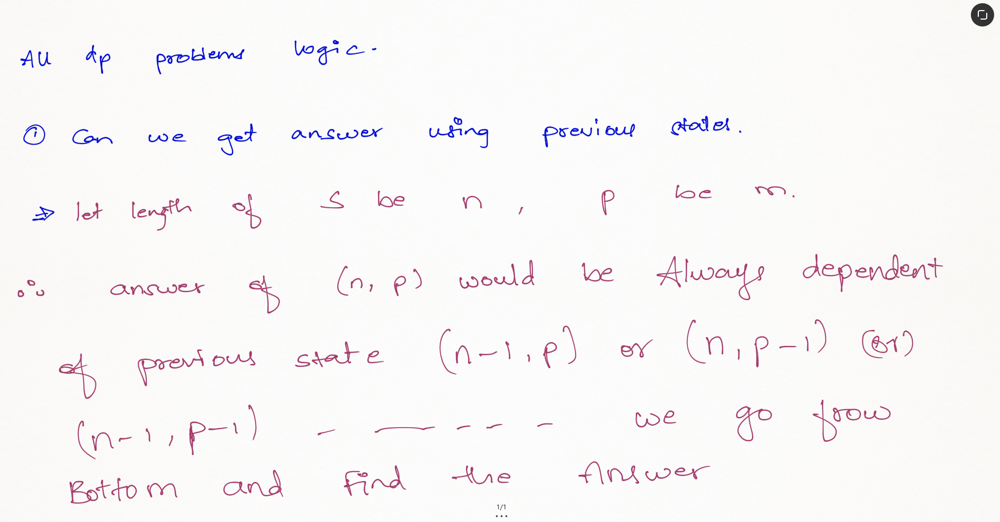 All dp problems logic.
① Can we get answer using previous states.
⇒ let length of S be n, p be m.
∴ answer of (n, p) would be Always dependent
of previous state (n-1, p) or (n, p-1) (or)
(n-1, p-1) - — - - - we go from
Bottom and find the Answer
1/1